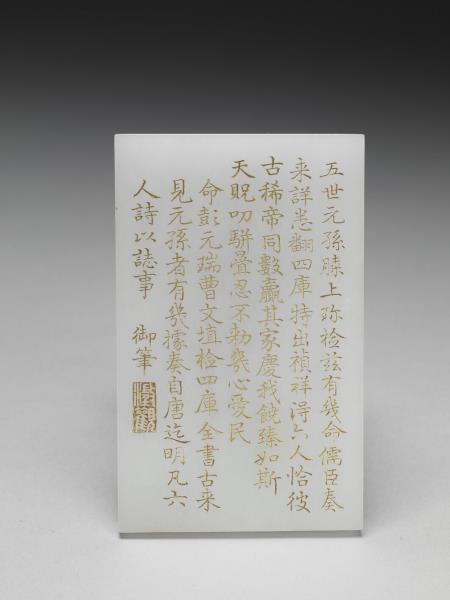 五世元孫膝上弥检茲有幾命儒臣奏
来詳悉翻四庫特出禎祥得六人恰彼
古稀帝同數贏其家慶我饒臻如斯
天貺叨駢疊忍不勑幾心愛民
命彭元瑞曹文埴检四庫全書古来
見元孫者有幾據奏自唐迄明凡六
人詩以誌事 御筆